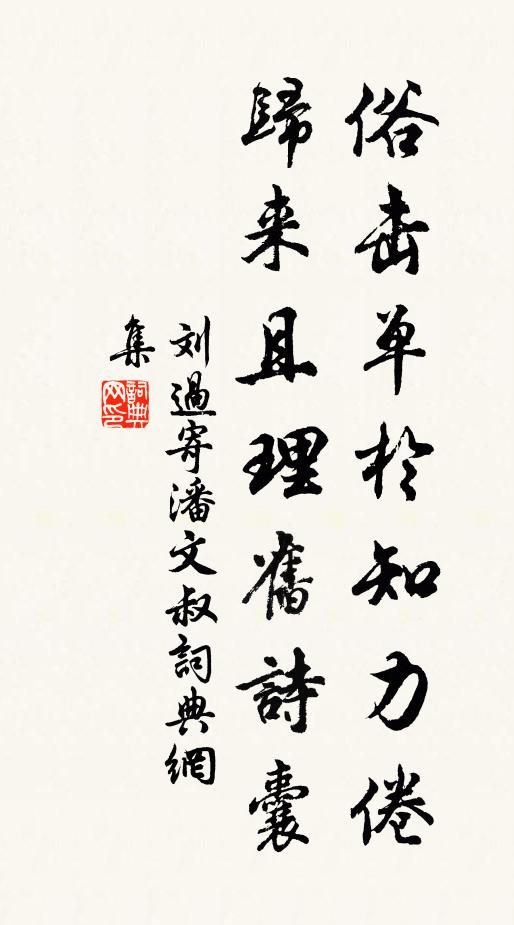 俗击单於知力倦
歸来且理舊詩囊
刘過寄潘文叔詞典網
集
詞典
网印